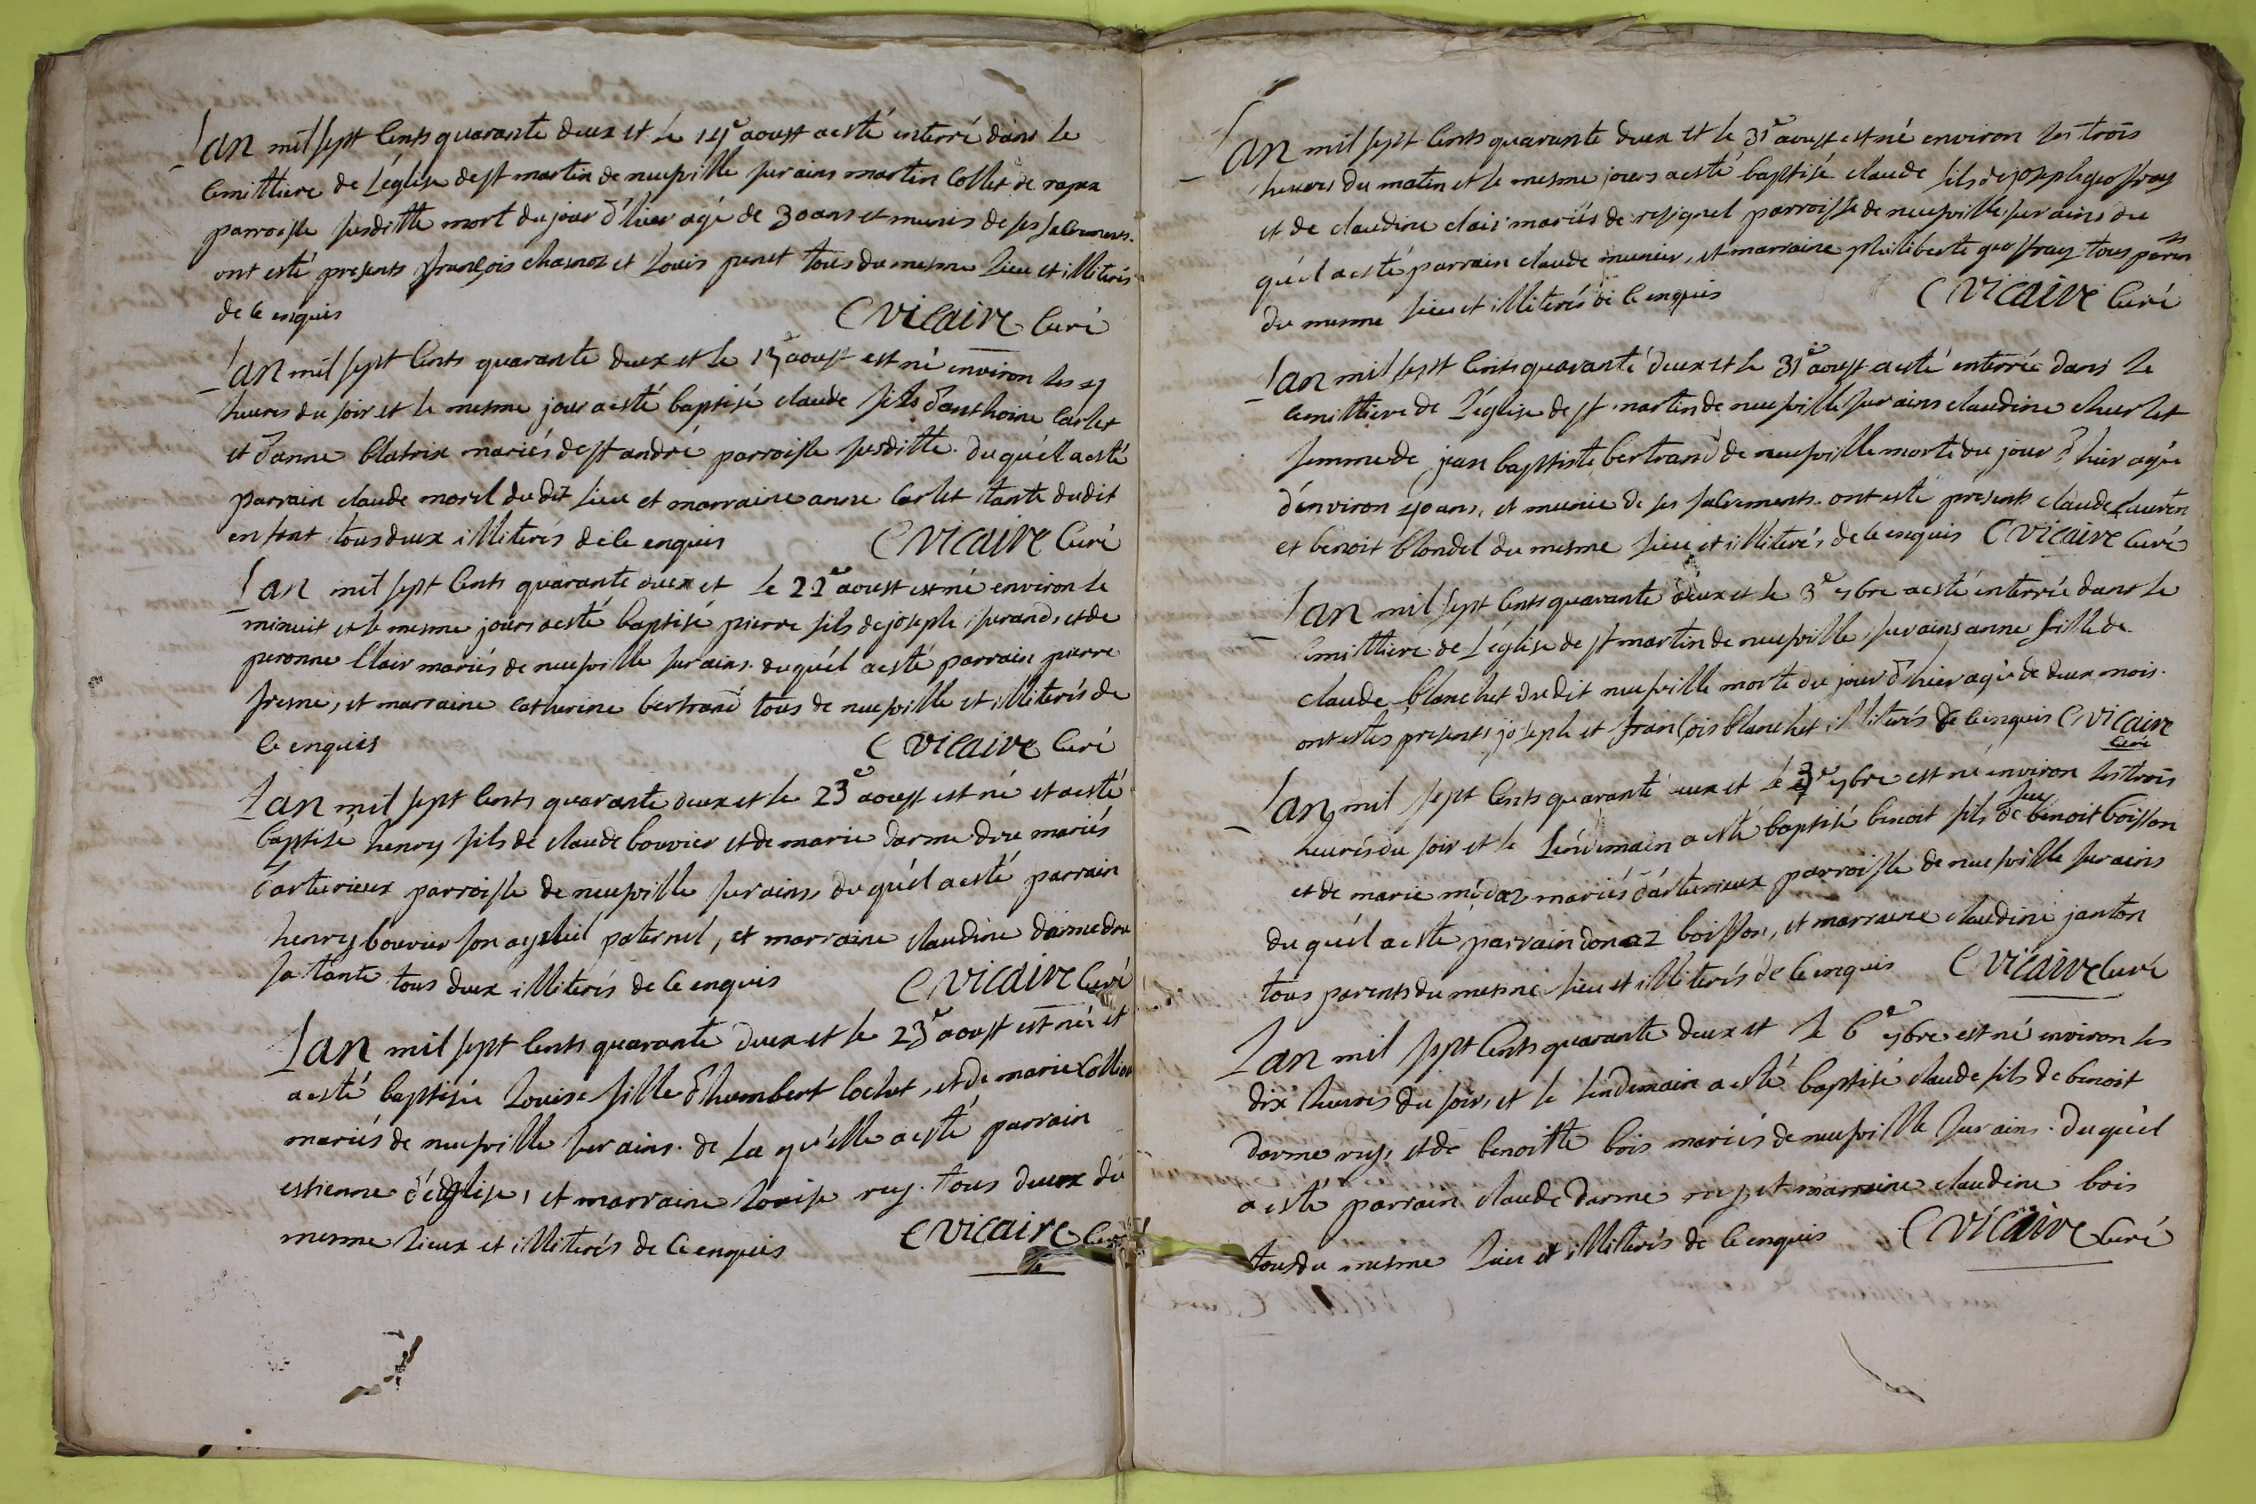 Lan mil sept cents quarante deux et le 14e aoust a esté enterré dans le
cemittiere de L'église de st martin de neufville sur ains martin collet de rapax
parroisse susditte mort du jour d'hier agé de 30 ans et munis de ses sacrements.
ont esté presents françois chasnoz et Louis penet tous du mesme Lieu et illiterés
de ce enquis
C vicaire curé
Lan mil sept cents quarante deux et le 17e aoust est né environ les 4
heures du soir et le mesme jour a esté baptisé claude fils d'anthoine carlet
et d'anne blatrix mariés de st andré parroisse susditte. du quél a esté
parrain claude morel du dit lieu et marraine anne carlet tante du dit
enfant tous deux illiterés de ce enquis
C vicaire curé
Lan mil sept cents quarante deux et le 22e aoust est né environ le
minuit et le mesme jours a esté baptisé pierre fils de joseph surand, et de
peronne clair mariés de neufville sur ains. du quél a esté parrain pierre
fresne, et marraine catherine bertrand tous de neufville et illiterés de
ce enquis
C vicaire curé
Lan mil sept cents quarante deux et le 23e aoust est né et a esté
baptisé henry fils de claude bouvier et de marie darme dru mariés
d'arturieux parroisse de neufville sur ains, du quél a esté parrain
henry bouvier son ayeul paternel, et marraine claudine darmedru
sa tante tous deux illiterés de ce enquis
C vicaire curé
Lan mil sept cents quarante deux et le 23e aoust est née et
a esté baptisée Louise fille d'humbert cochet, et de marie collier
mariés de neufville sur ains. de la qu'élle a esté parrain
estienne d'église, et marraine Louise rey. tous deux du
mesme Lieux et illiterés de ce enquis
C vicaire curé
Lan mil sept cents quarante deux et le 31e aoust est né environ les trois
heures du matin et le mesme jours a esté baptisé claude fils de joseph geoffray
et de claudine clair mariés de resignel parroisse de neufville sur ains du
quél a esté parrain claude munier, et marraine philiberte geoffray tous parents
du mesme lieu et illiterés de ce enquis
C vicaire curé
Lan mil sept cents quarante deux et le 31e aoust a esté enterrée dans le
cemittiere de L'église de st martin de neufville sur ains claudine churlet
femme de jean baptiste bertrand de neufville morte du jour d'hier agée
d'environ 40 ans, et munie de ses sacrements. ont esté présents claude Lauren
et benoit blondel du mesme lieu et illiterés de ce enquis C vicaire curé
Lan mil sept cents quarante deux et le 3e 7bre a esté enterrée dans le
cemittiere de L'église de st martin de neufville sur ains anne fille de
claude blanchet du dit neufville morte du jour d'hier agée de deux mois.
ont estés presents joseph et françois blanchet illiterés de ce enquis C vicaire
curé
Lan mil sept cents quarante deux et le 3e 7bre est né environ les trois
heures du soir et le Lendemain a esté baptisé benoit fils de feu benoit boisson
et de marie midaz mariés d'arturieux parroisse de neufville sur ains
du quél a esté parrain donaz boisson, et marraine claudine janton
tous parents du mesme lieu et illiterés de ce enquis
C vicaire curé
Lan mil sept cents quarante deux et le 6e 7bre est né environ les
dix heures du soir, et le lendemain a esté baptisé claude fils de benoit
darme rey, et de benoitte bois mariés de neufville sur ains. du quél
a esté parrain claude darme rey, et marraine claudine bois
tous du mesme Lieu et illiterés de ce enquis
C vicaire curé